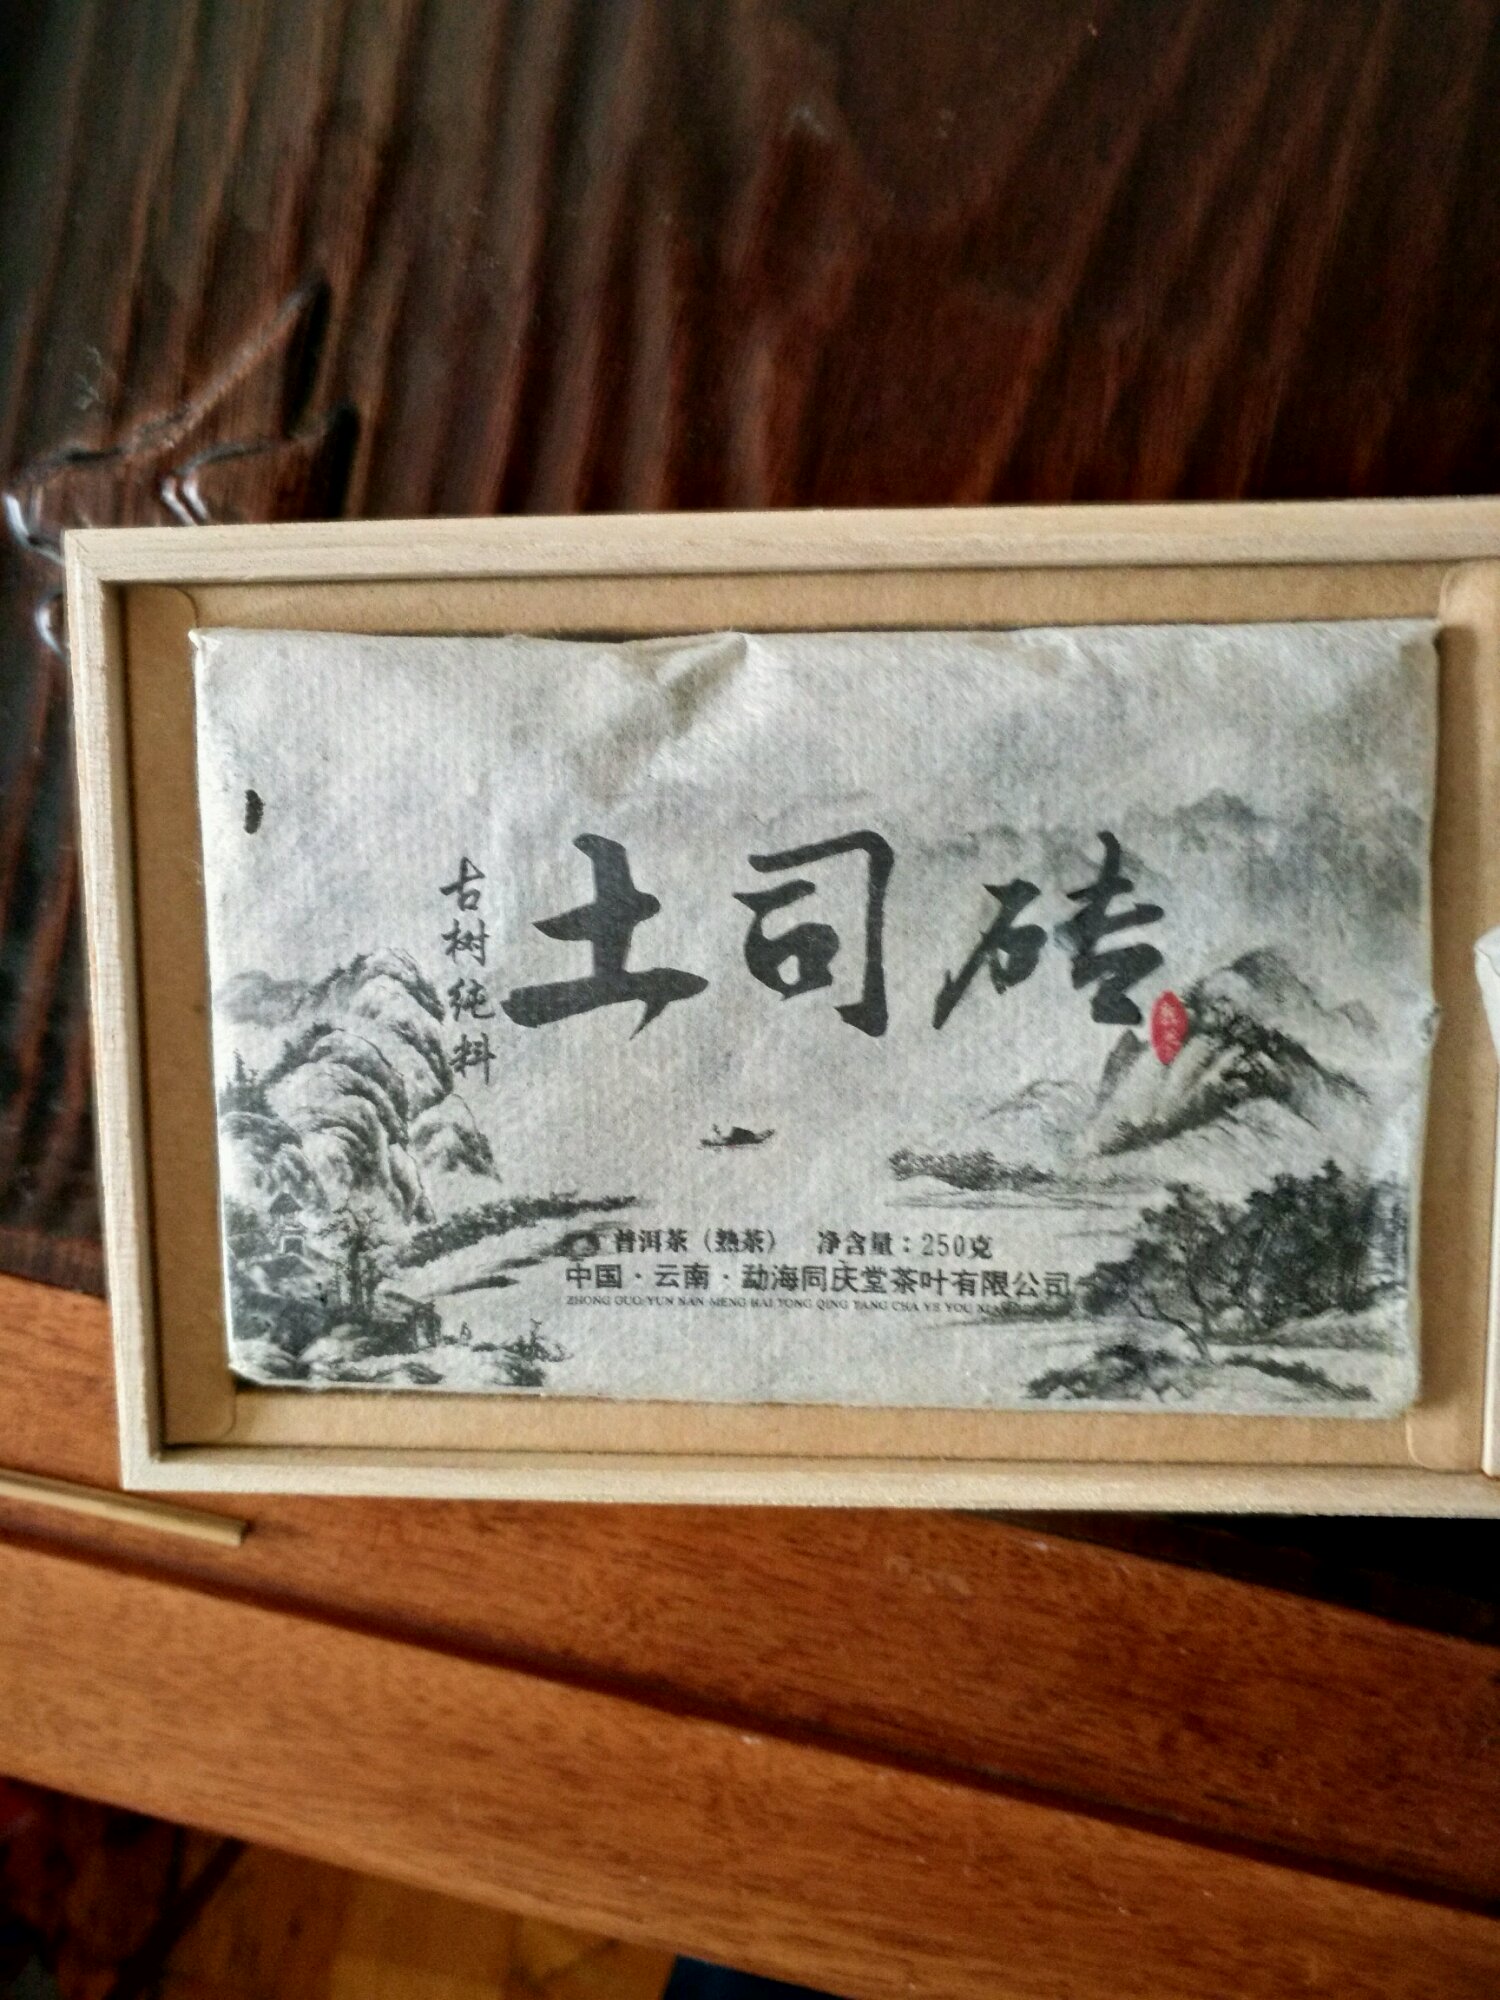 古树纯料
土司砖
普洱茶（熟茶） 净含量：250克
中国·云南·勐海同庆堂茶叶有限公司
ZHONG GUO YUN NAN MENG HAI TONG QING TANG CHA YE YOU XIAN